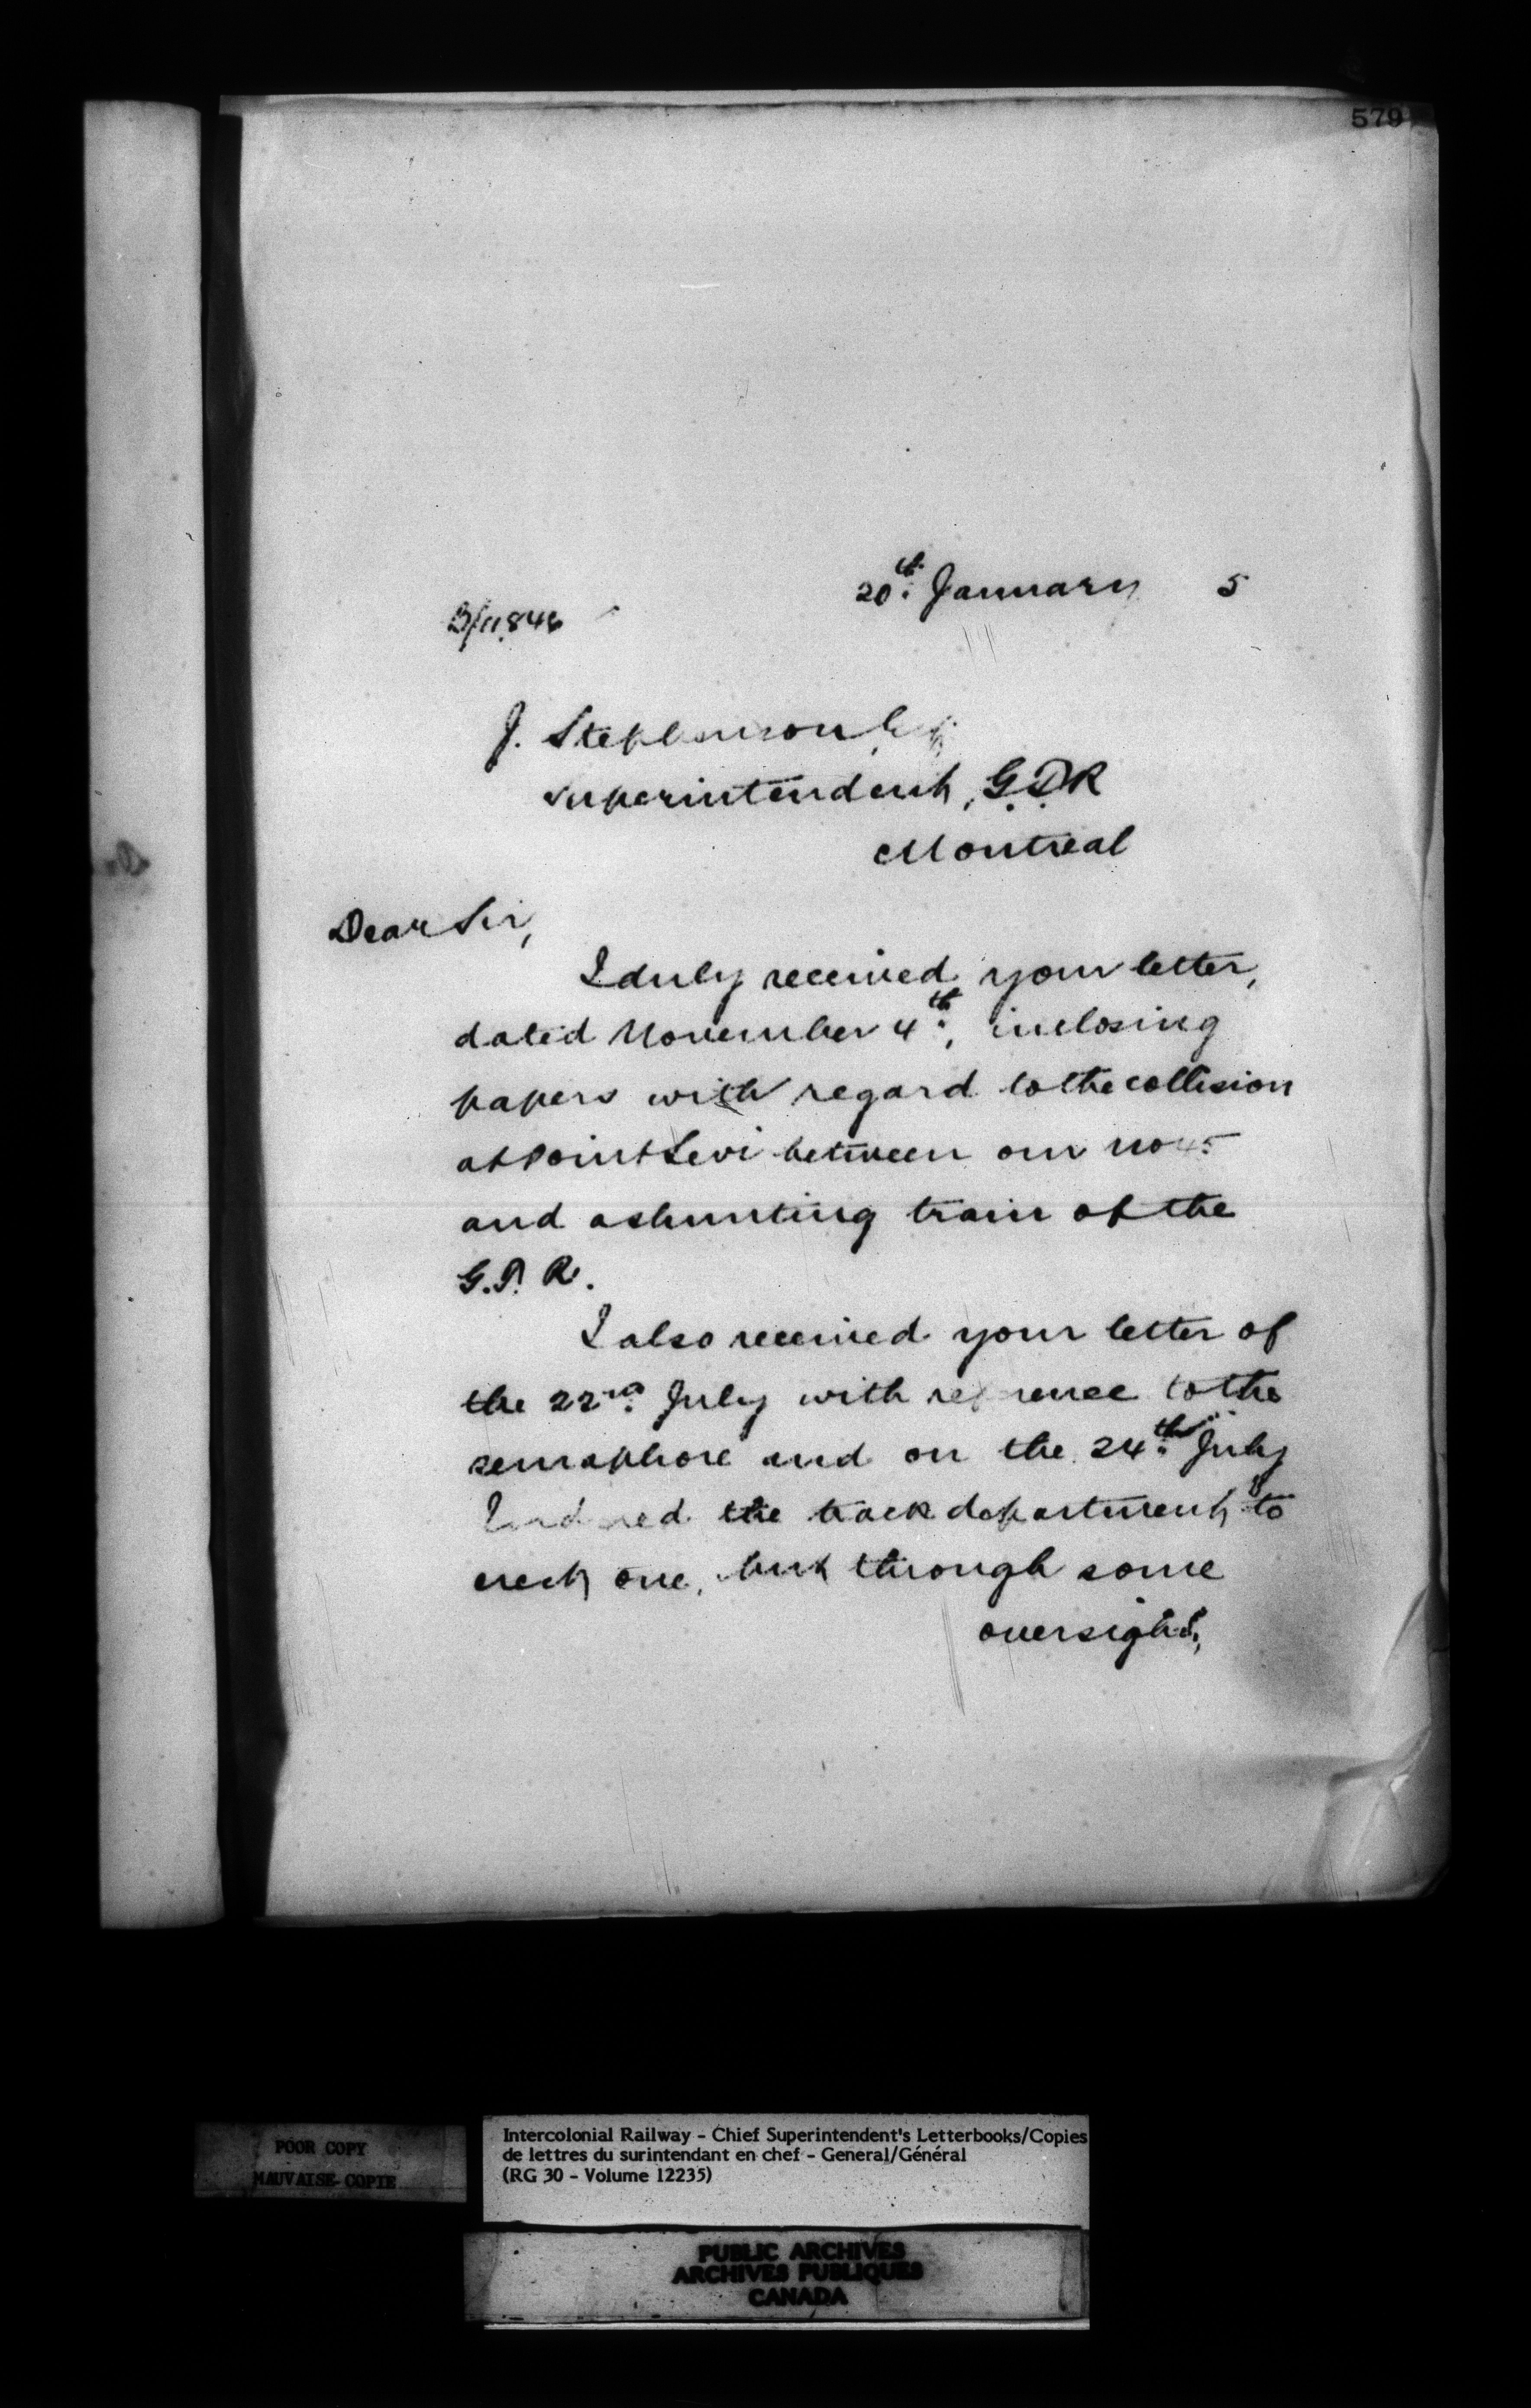 579
20th January 5
B/11846
J. Stephenson Esq
Superintendent, G.T.R
Montreal
Dear Sir,
I duly received your letter,
dated November 4th, inclosing
papers with regard to the collision
at Point Levi between our No 45
and a shunting train of the
G.T.R.
I also received your letter of
the 22nd July with reference to the
semaphore and on the 24th July
I ordered the track department to
erect one, but through some
oversight,
POOR COPY
MAUVAISE COPIE
Intercolonial Railway - Chief Superintendent's Letterbooks/Copies
de lettres du surintendant en chef - General/Général
(RG 30 - Volume 12235)
PUBLIC ARCHIVES
ARCHIVES PUBLIQUES
CANADA